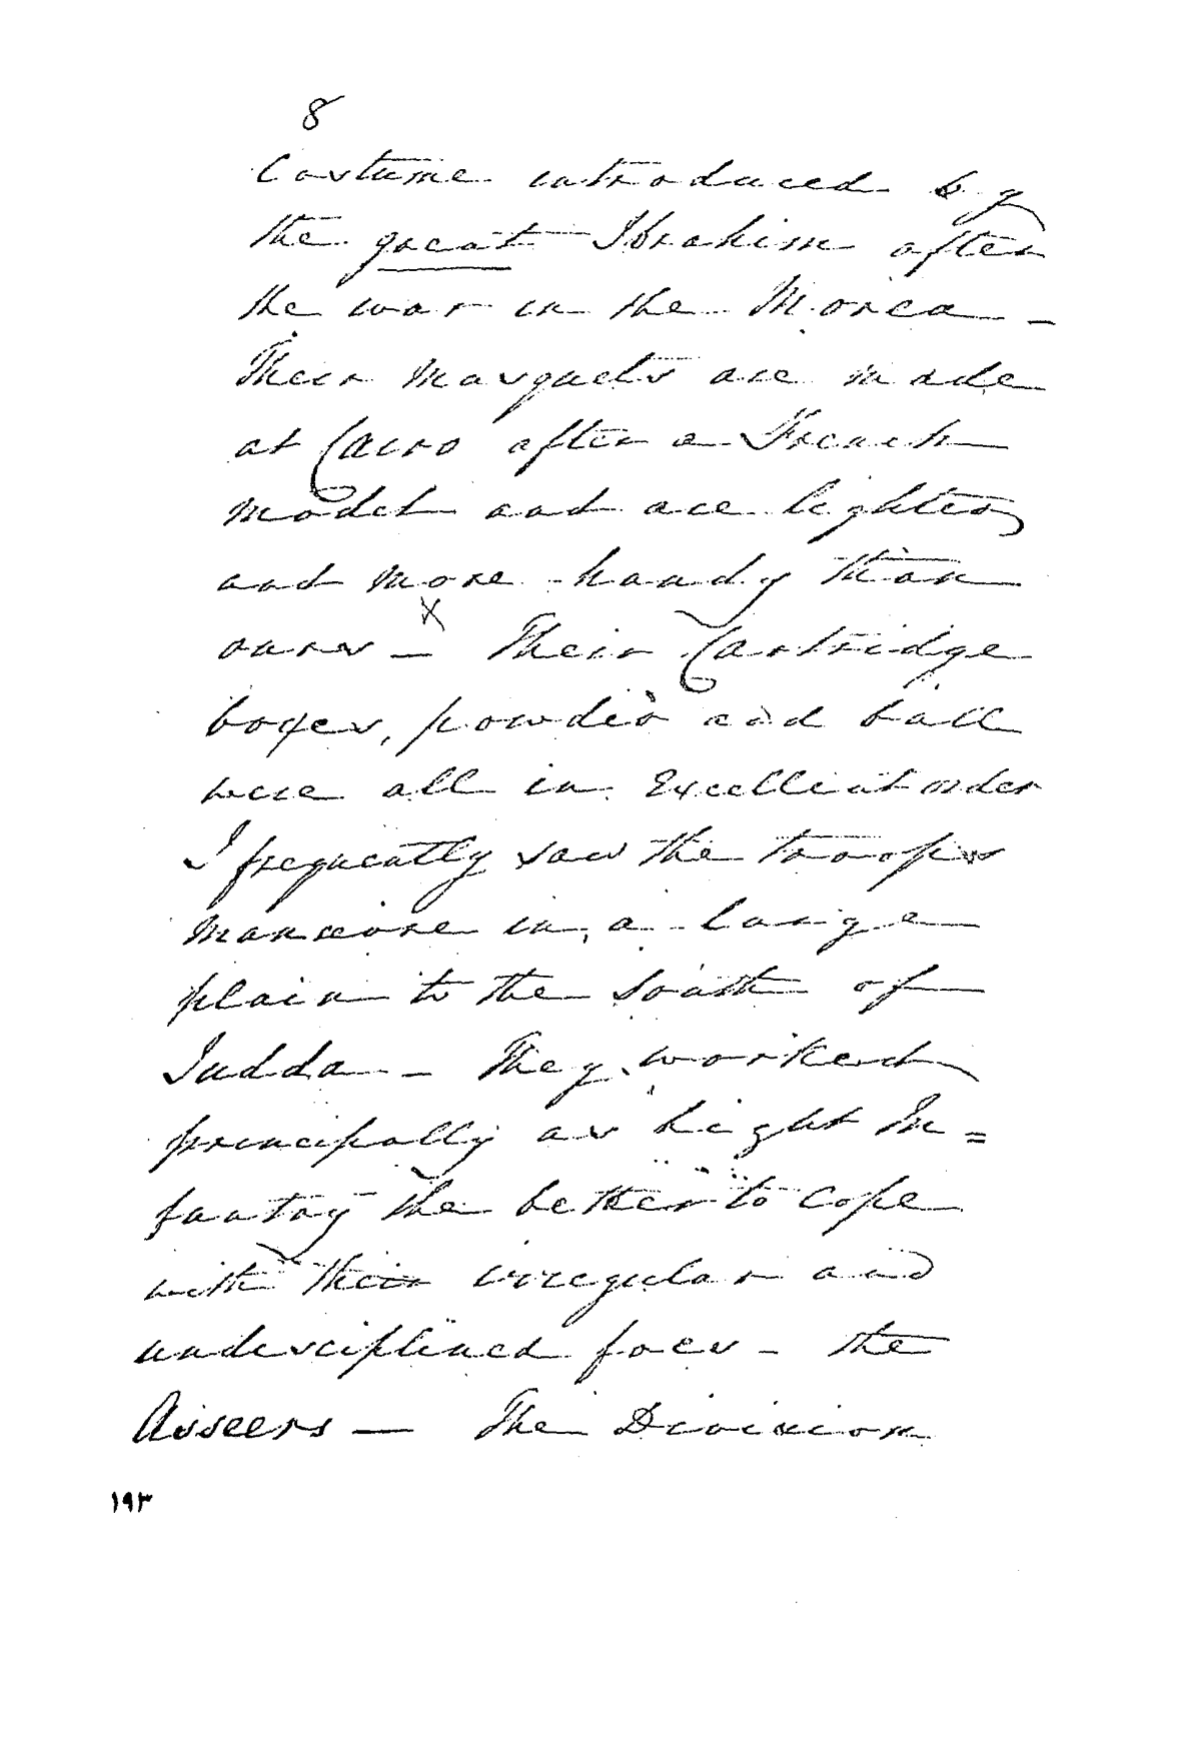 8
Costume introduced by
the great Ibrahim after
the war in the Morea -
Their Musquets are made
at Cairo after a French
model and are lighter
and more handy than
X
ours - Their Cartridge
boxes, powder and ball
were all in Excellent order
I frequently saw the troops
manœuvre in a large
plain to the South of
Judda - They worked
principally as Light In=
fantry the better to cope
with their irregular and
undisciplined foes - the
Asseers - The Division
١٩٣